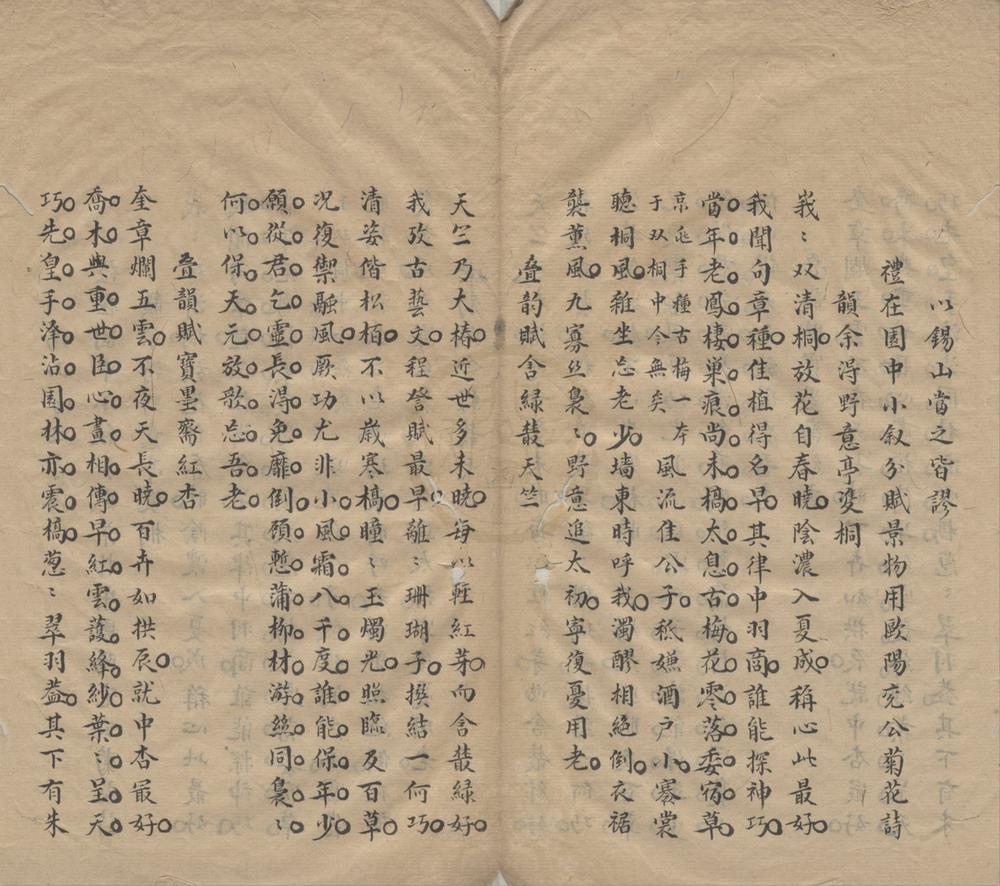 以錫山當之皆謬
禮在園中小叙分賦景物用歐陽兖公菊花詩
韻余淂野意亭雙桐
峩〻双清桐放花自春曉陰濃入夏成稱心此最好
我聞句章種佳植得名早其律中羽商誰能探神巧
當年老鳳棲巢痕尚未槁太息古梅花零落委宿草
京邸手種古梅一本
于双桐中今無矣
風流佳公子秪嫌酒户小褰裳
聽桐風雜坐忘老少墙東時呼我濁醪相絕倒衣裾
襲薰風九寡丝裊〻野意追太初寧復憂用老
叠韵賦舍緑叢天竺
天竺乃大椿近世多未曉每以輕紅芽而舍叢緑好
我攷古藝文程詧賦最早離〻珊瑚子撰結一何巧
清姿偕松栢不以歳寒槁曈〻玉燭光照臨及百草
况復禦融風厥功尤非小風霜八千度誰能保年少
願從君乞靈長淂免靡倒顧慙蒲柳材游絲同裊〻
何以保天元放歌忘吾老
叠韻賦寶墨齋紅杏
奎章爛五雲不夜天長曉百卉如拱辰就中杏最好
喬木與重世臣心畫相傳早紅雲護絳紗葉〻呈天
巧先皇手泽沾園林亦震槁葱〻翠羽葢其下有朱